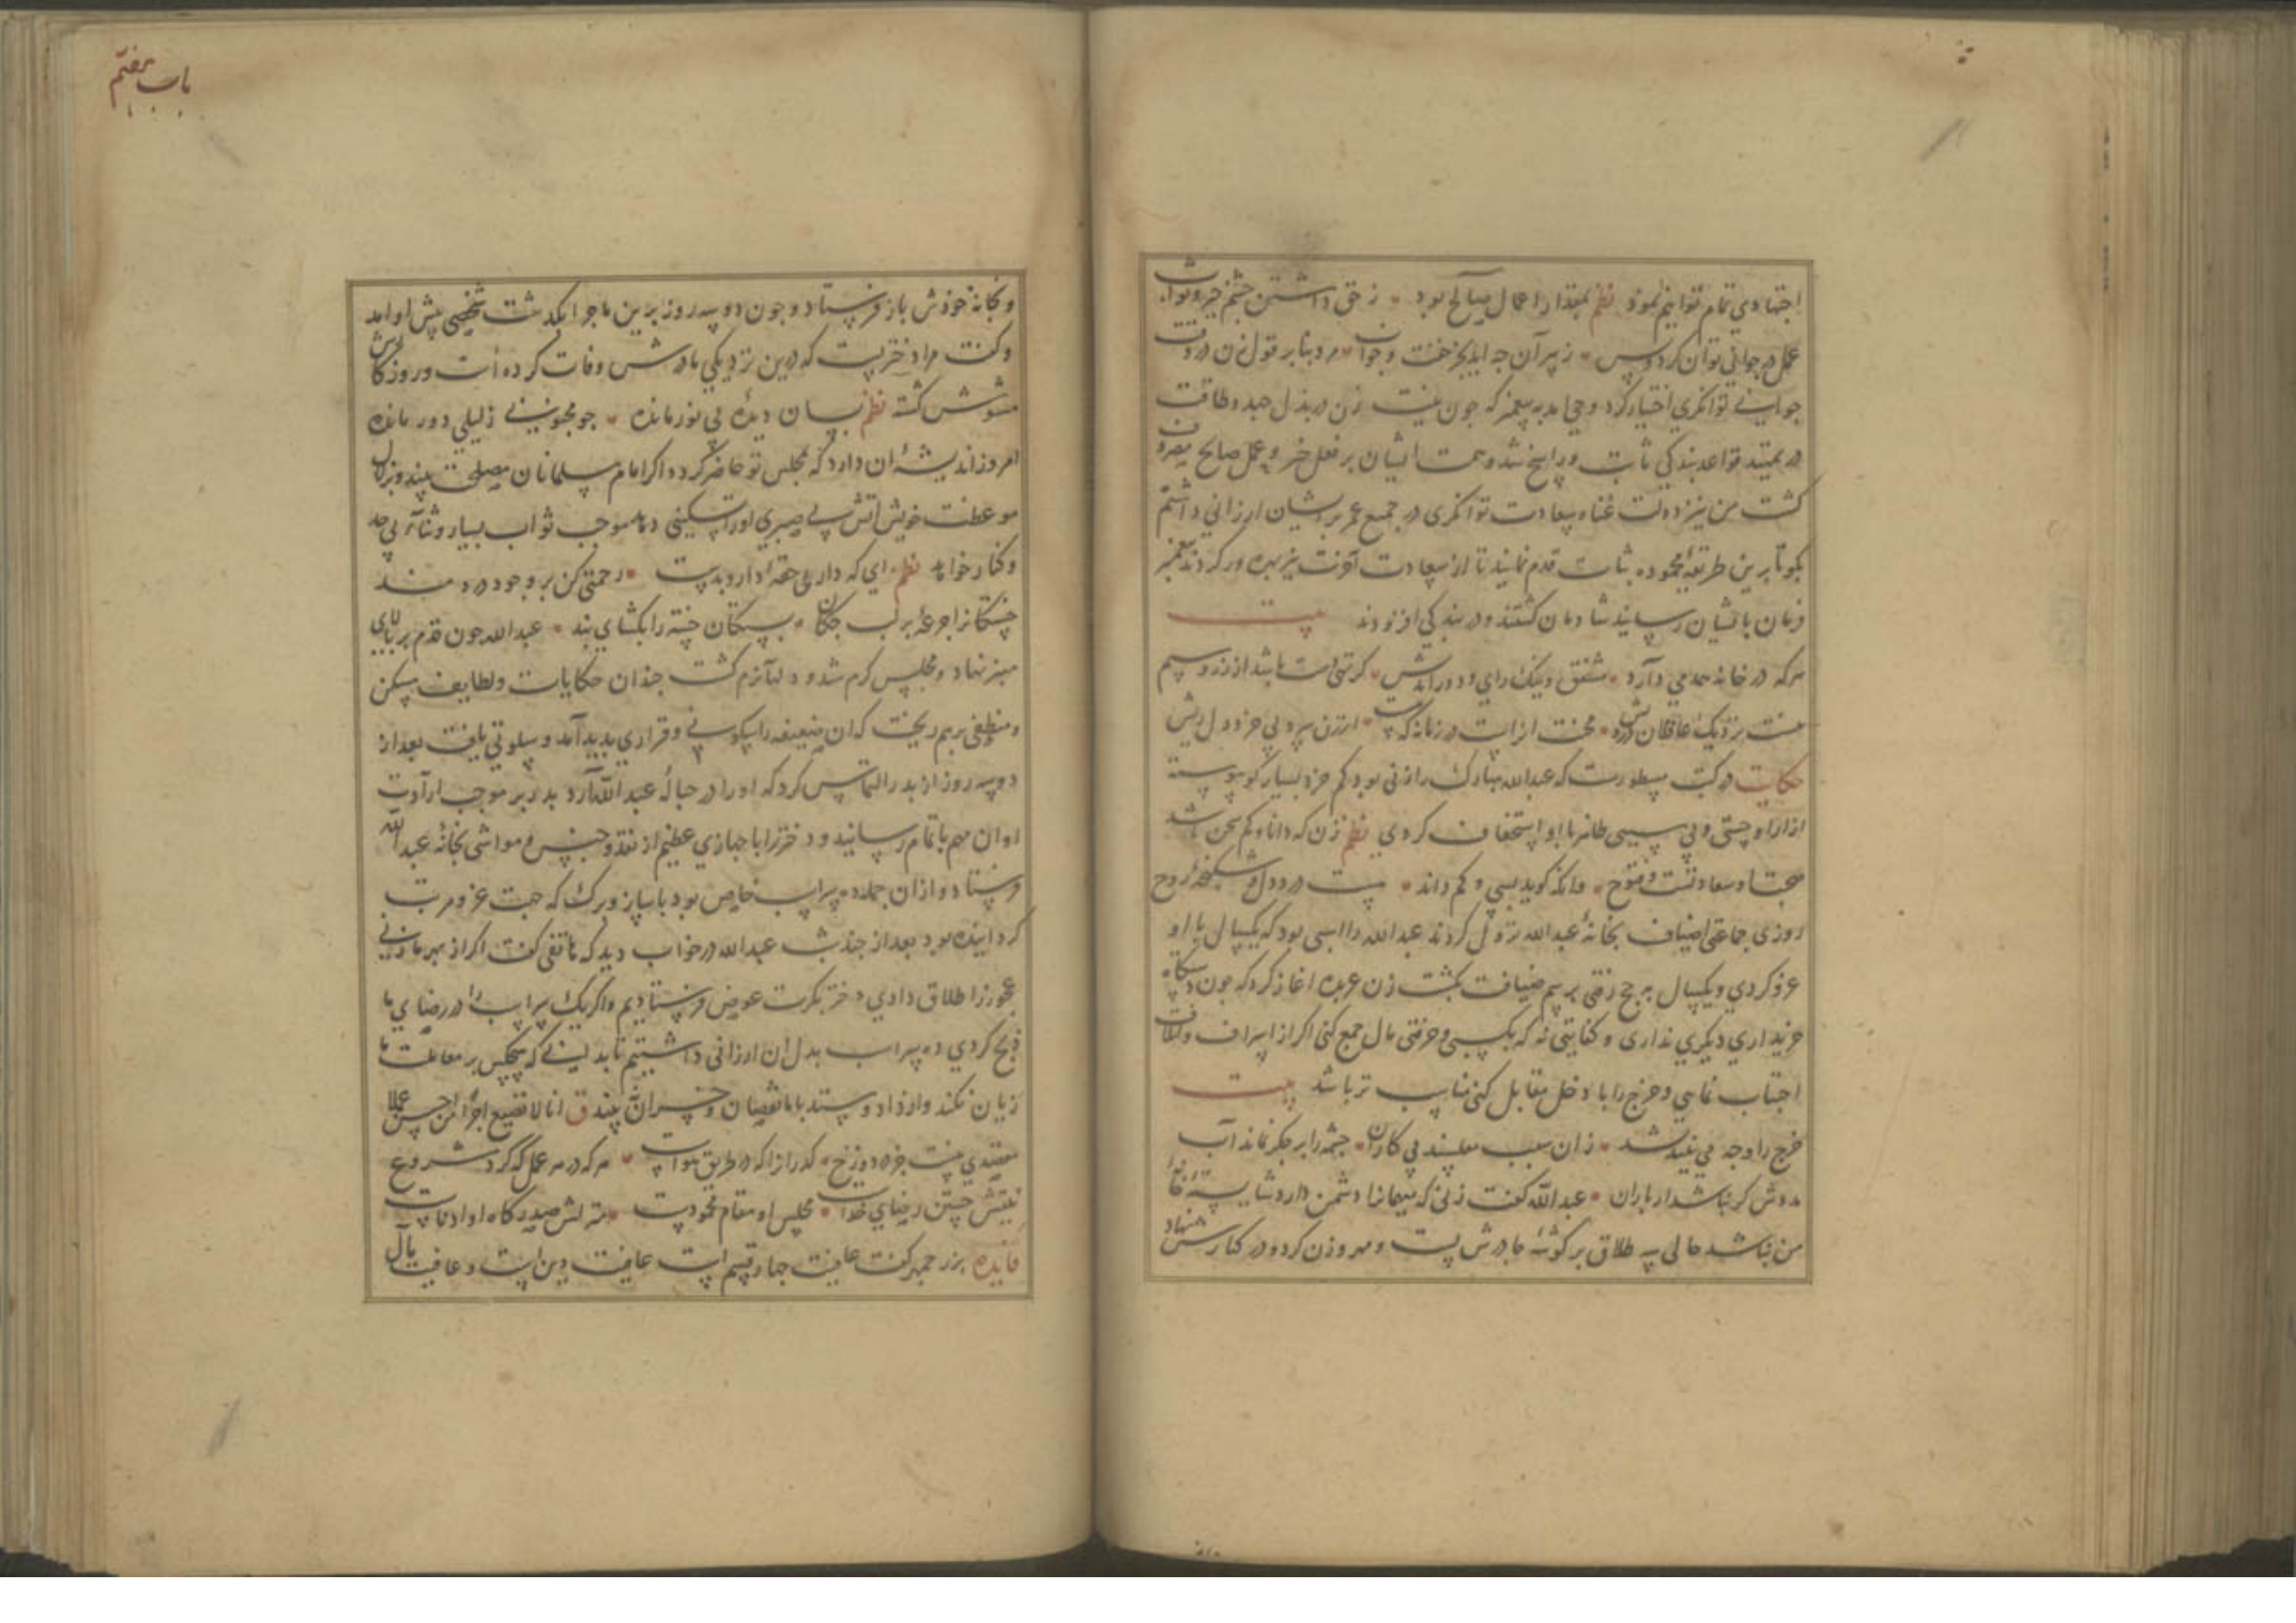 اجتهادی تمام توانیم نمود نظم بمقدار اعمال صالح بود زحق داشتن چشم خیر و ثواب
عمل در جوانی توان کرد و بس ز پیر آن چه آید بجز خفت و خواب مرد بنابر قول زن در وقت
جوانی توانکری اختیار کرد وحی امد به پیغمبر که چون نیت زن در بذل جهد و طاقت
در تمهید قواعد بندکی ثابت و راسخ شد و همت ایشان بر فعل خیر و عمل صالح مصروف
کشت من نیز دولت غنا و سعادت توانکری در جمیع عمر بریشان ارزانی داشتم
بکو تا برین طریقهٔ محموده ثبات قدم نمایند تا از سعادت آخرت نیز بهره ور کردند پیغمبر
فرمان بایشان رسانید شادمان کشتند و در بندکی افزودند بیت
هرکه در خانه همدمی دارد مشفق و نیک رای و دور اندیش کر تهی دست باشد از زر و سیم
هست نزدیک عاقلان درویش محنت از است در زمانه که از زن پیر و بی خرد دل ریش
حکایت در کتب مسطورست که عبدالله مبارک را زنی بود کم خرد بسیار کو پیوسته
ازارا و جستی و بی سببی ظاهر با او استخفاف کردی نظم زن که دانا و کم سخن باشد
صحبتش سعادتست و فتوح وانکه کوید بسی و کم داند هست درد دل و شکنجهٔ روح
روزی جماعتی اضیاف بخانهٔ عبدالله نزول کردند عبدالله را اسبی بود که یکسال با او
غزو کردی و یکسال به حج رفتی برسم ضیافت بکشت زن عربده اغاز کرد که چون دستکاه
خریداری دیکری نداری و کفایتی نه که بکسبی و حرفتی مال جمع کنی اکر از اسراف و اتلاف
اجتناب نمایی و خرج را با دخل مقابل کنی مناسب تر باشد بیت
خرج را وجه می نیندیشد زان سبب مفلسند بی کاران چشمه را بر جکر نماند آب
مدوش کر نباشد از باران عبدالله کفت زنی که مهمانرا دشمن دارد شایستهٔ خانهٔ
من نباشد حالی سه طلاق بر کوشهٔ چادرش بست و مهر وزن کرد و در کنارش نهاد
باب هفتم
و بخانهٔ خودش باز فرستاد و چون دو سه روز برین ماجرا بکذشت شخصی پیش او امد
و کفت مرا دختریست که درین نزدیکی مادرش وفات کرده است و روزکارش
مشوش کشته نظم بسان دیدهٔ بی نور مانده چو مجنونی ز لیلی دور مانده
امروز اندیشهٔ ان دارد که بمجلس تو حاضر کردد اکر امام مسلمانان مصلحت بیند و بزلال
موعظت خویش اتش بی صبری اورا تسکینی دهد موجب ثواب بسیار و ثنای بی حد
و کنار خواهد نظم ای که داری حقهٔ دارو بدست رحمتی کن بر وجود دردمند
خستکانرا جرعهٔ بر لب چکان بستکان خسته را بکشای بند عبدالله چون قدم بر بالای
منبر نهاد و مجلس کرم شد و دلها نرم کشت چندان حکایات و لطایف مسکن
و منطفی برهم ریخت که ان ضعیفه را سکونی و قراری پدید آمد و سلوتی یافت بعد از
دو سه روز از پدر التماس کرد که او را در حبالهٔ عبدالله آرد پدر بر موجب ارادت
او ان مهم باتمام رسانید و دختر را با جهازی عظیم از نقد و جنس و مواشی بخانهٔ عبدالله
فرستاد و ازان جمله ده سر اسب خاص بود با ساز و برک که جهت غزو مرتب
کردانیده بود بعد از چند شب عبدالله در خواب دید که هاتفی کفت اکر از بهر ما زنی
عجوزرا طلاق دادی دختر بکرت عوض فرستادیم و اکر یک سر اسب را در رضای ما
ذبح کردی ده سر اسب بدل ان ارزانی داشتیم تا بدانی که هیچکس بر معاملت ما
زیان نکند و از داد و ستد با ما نقصان و خسران نبیند ق انا لا نضیع اجر من احسن عملا
مقتدی نیست جز ده دوزخ کذر انرا که در طریق هواست هرکه در هر عمل که کرد شروع
نیتش جستن رضای خداست مجلس او مقام محمودست منزلش صدر کاه او ادناست
فایده بزرجمهر کفت عافیت چهار قسم است عافیت دین است و عافیت مال